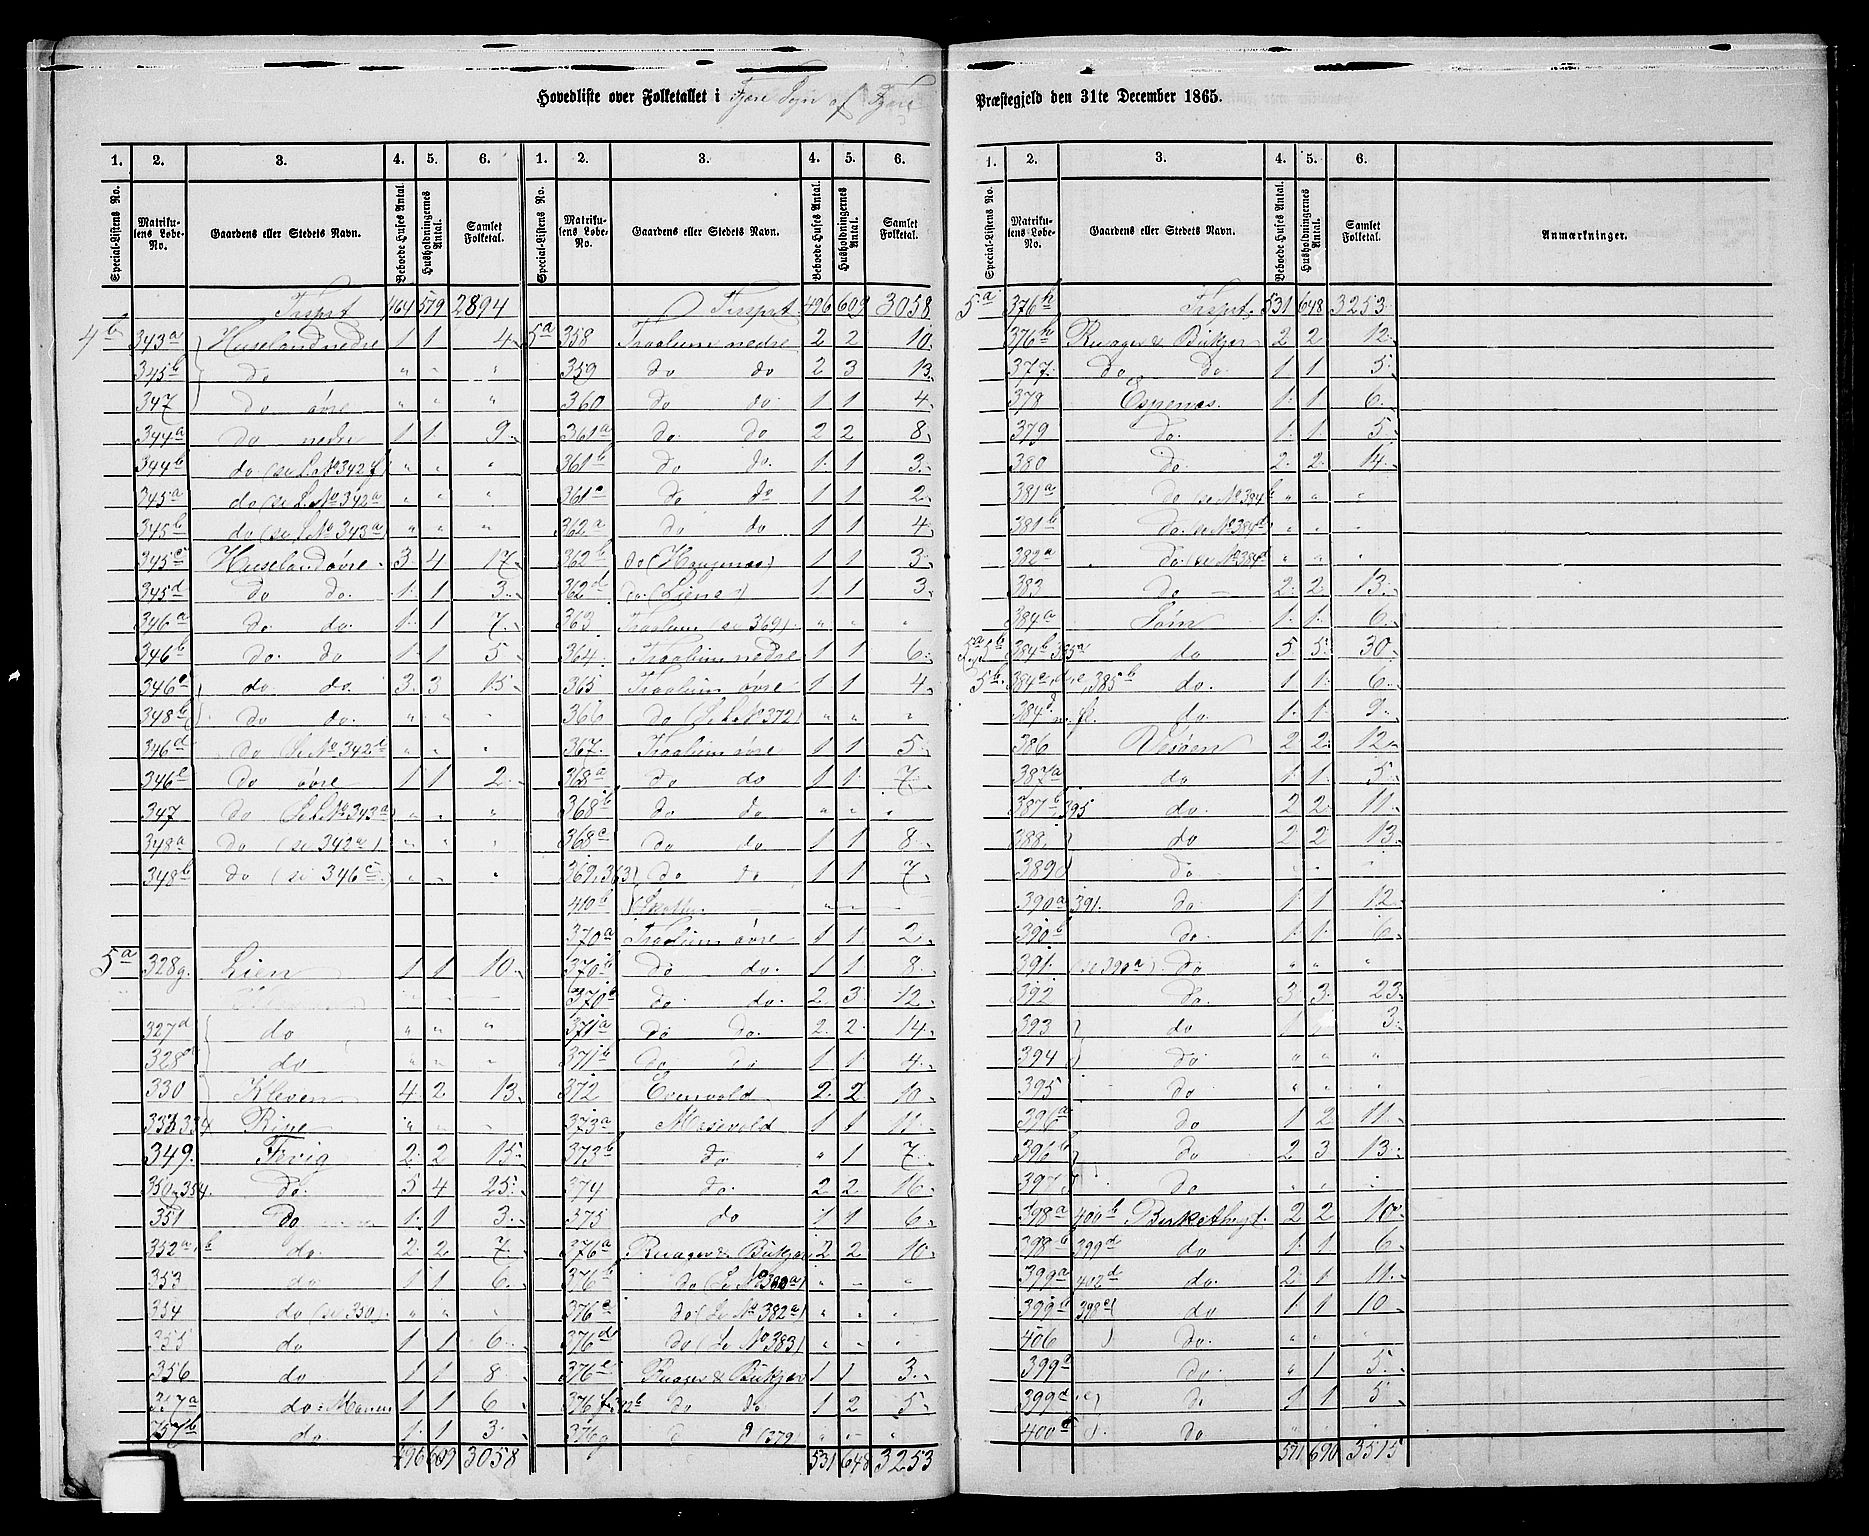 Hovedliste over Folketallet i Fjære Sogn af Fjære Præstegjeld den 31te December 1865.
1. 2. 3. 4. 5. 6. 1. 2. 3. 4. 5. 6. 1. 2. 3. 4. 5. 6.
Special-Listens No. Matrikulens Løbe-No. Gaardens eller Stedets Navn. Beboede Huses Antal. Husholdningernes Antal. Samlet Folketal. Special-Listens No. Matrikulens Løbe-No. Gaardens eller Stedets Navn. Beboede Huses Antal. Husholdningernes Antal. Samlet Folketal. Special-Listens No. Matrikulens Løbe-No. Gaardens eller Stedets Navn. Beboede Huses Antal. Husholdningernes Antal. Samlet Folketal. Anmærkninger.
Trsprt 464 579 2894
4b 343a Huseland nedre 1 1 4
345b do " " "
347 do øvre " " "
344a do nedre 1 1 9
344b do (se L.No 342f) " " "
345a do (se L.No 342a " " "
345b do (se L.No 343a) " " "
345c Huseland øvre 3 4 17
345d do do 1 1 3
346a do do 1 1 7
346b do do 1 1 5
346c do do 3 3 15
348b do do " " "
346d do (Se No 342e " " "
346e do øvre 1 1 2
347 do (Se L.No 343a) " " "
348a do (se 342a) " " "
348b do (se 346c) " " "
5a 328g Lien 1 1 10
327d do " " "
328 do " " "
330 Kleven 4 2 13
333.334 " " "
349 Fevig 2 2 15
350.354 do 5 4 25
351 do 1 1 3
352a.b do 2 2 7
353 do 1 1 6
354 do (se 350) " " "
355 do 1 1 6
356 do 1 1 8
357a do 1 1 6
357b do 1 1 3
496 609 3058
Trsprt 496 609 3058
5a 358 Traalum nedre 2 2 10
359 do do 2 3 13
360 do do 1 1 4
361a do do 2 2 8
361b do do 1 1 3
361c do do 1 1 2
362a do do 1 1 4
362b do (Haugenæs) 1 1 3
362d do (Liene) 1 1 3
363 Traalum (se 369) " " "
364 Traalum nedre 1 1 6
365 Traalum øvre 1 1 4
366 do (Se L.No 372) " " "
367 Traalum øvre 1 1 5
368a do do 1 1 7
368b do do " " "
368c do do 1 1 8
369.363 do do 1 1 7
410b " " "
370a Traalum øvre 1 1 2
370b do do 1 1 8
370b do do 2 3 12
371a do do 2 2 14
371b do do 1 1 4
372 Evenvold 2 2 10
373a Mosevold 1 1 11
373b do " 1 7
374 do 2 2 16
375 do 1 1 6
376a Ruager & Bukjær 2 2 10
376b do " " "
376c do (Se No 382a) " " "
376d do (Se No 383) " " "
376e Ruager & Bukjær 1 1 3
376f do do 1 2 5
376g (379) " " "
531 648 3253
5a 376h Trsprt. 531 648 3253
376h Ruager & Bukjær 2 2 12
377 do do 1 1 5
378 Espenæs 1 1 6
379 do 1 1 5
380 do 2 2 14
381a do (se No 384b " " "
381b do (se No 384d " " "
382a do (se No 384d " " "
383 do 2 2 13
384a Søm 1 1 6
5a 5b 384b 385a do 5 5 30
5b 384c,d,e 385b do 1 1 6
384 do 1 1 9
386 Vesøen 2 2 12
387a do 1 1 5
387b,395 do 2 2 11
388 do 2 2 13
389 do " " "
390a 391 do 1 1 12
390b do 1 1 6
391 (se 390a) do " " "
392 do 3 3 23
393 do 1 1 3
394 do " " "
395 do " " "
396a do 1 2 11
396b do 2 3 13
397 do " " "
398a 400b Birkethvet 2 2 10
398b 399d do 1 1 6
399a 402d do 2 1 11
399b 398c do 1 1 10
406 do " " "
399c do " 1 5
399d do 1 1 5
400 do " " "
571 690 3515